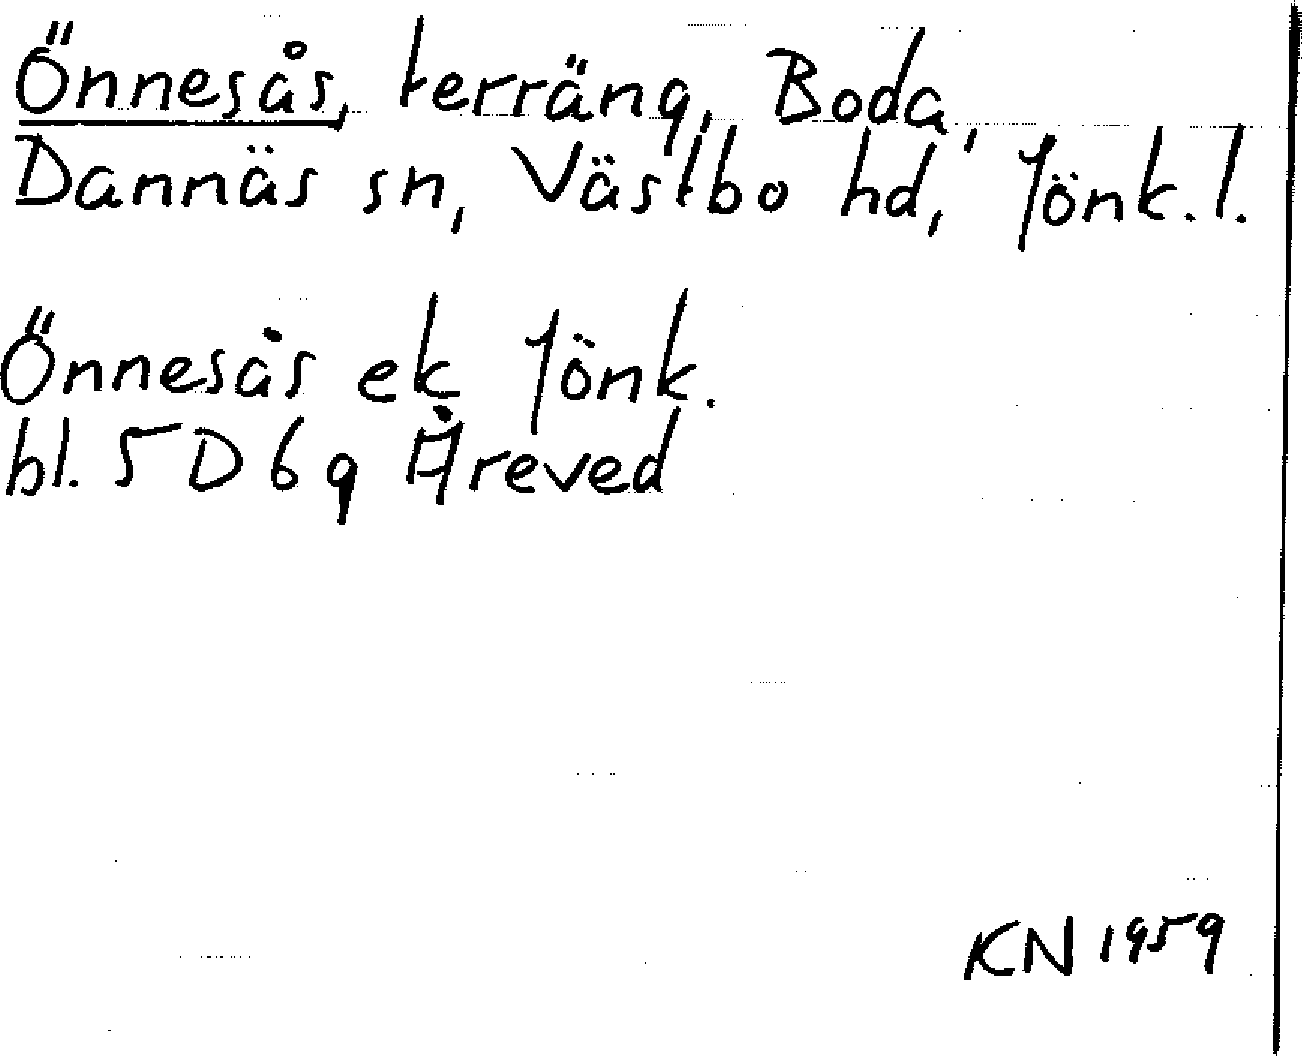 Önnesås, terräng, Boda,
Dannäs sn, Västbo hd, Jönk.l.
Önnesås ek Jönk.
bl. 5D 6g Åreved
KN 1959